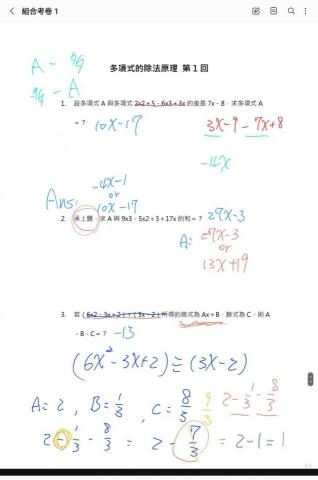 組合考卷 1
多項式的除法原理 第 1 回
A - 多
多 - A
1. 設多項式 A 與多項式 2x2+5-6x3+3x 的差是 7x-8，求多項式 A
=？ 10x-17
3x-9-7x+8
-4x
Ans: -4x-1
or
10x-17
2. 承上題，求 A 與 9x3-5x2+3+17x 的和=？ 27x-3
A: 27x-3
or
13x+19
3. 若 (6x2-3x+2)÷(3x-2) 所得的商式為 Ax+B，餘式為 C，則 A
-B-C=？ -13
(6x²-3x+2)÷(3x-2)
A=2, B=1/3, C=8/3 9/3 2-1/3-8/3
2-1/3-8/3 = 2-7/3 = 2-1=1